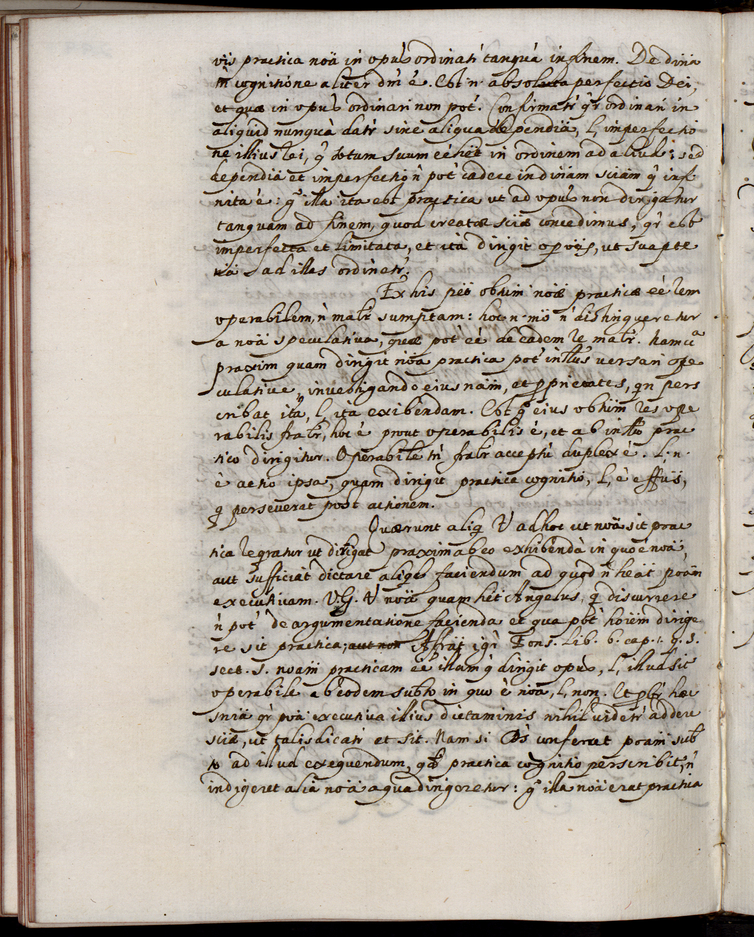 vis practica noã in opus ordinatr tanquã in finem. De divia
tñ cognitione aliter dm̃ ẽ. Est n. absoluta perfectio Dei,
et quæ in opus ordinari non pot. Confirmatr qr ordinari in
aliquid nunquã datr sine aliqua dependia, l, imperfectio
ne illius rei, q totum suum eẽ het in ordinem ad aliud; sed
dependia et imperfectio ñ pot cadere in divinam sciam q infi
nita ẽ: gº illa ita est practica ut ad opus non dirigatur
tanquam ad finem, quod creatæ sciæ concedimus, qr est
imperfecta et limitata, et ita dirigit opois, ut suapte
ad illas ordinetr.
Ex his pet obtum noæ practicæ eẽ rem
operabilem, ñ matr sumptam: hoc n. mº ñ distingueretur
a noã speculativa, quæ pot eẽ de eadem re matr. Nam circa
praxim quam dirigit noã practica pot intlus versari spe
culative, investigando eius nam, et pprietates, qn pers
cribat ita, l, ita exibendam. Est gº eius obtum res ope
rabilis fratr, hoc ẽ prout operabilis ẽ, et ab intu prac
tico dirigitur. Operabile tñ fralr acceptũ duplex ẽ. l. n.
ẽ actio ipsa, quam dirigit practice cognitio, l, ẽ effus,
q perseverat post actionem.
Quærunt aliq ad hoc ut noã sit prac
tica requiratur ut dirigat praxim ab eo exhibendã in quo ẽ noã,
aut sufficiat dictare aliqd faciendum ad quod ñ heat poãm
executivam. V.G. noã quam het Angelus, q discurrere
ñ pot de argumentatione facienda et qua pot hoiem dirige
re sit practica; Affrat igr Fons. lib. 6. cap. 1. q. 5.
sect. 5. noam practicam eẽ illam q dirigit opus, l, illud sit
operabile ab eodem subto in quo ẽ noã, l, non. Et pbr hæc
sñia qr poã executiva illius dictaminis nihil videtr addere
sciæ, ut talis dicatr et sit. Nam si Ds conferret poam sub
to ad illud exequendum, qd practica cognitio perscribit, ñ
indigeret alia noã a qua dirigeretur: gº illa noã erat practica